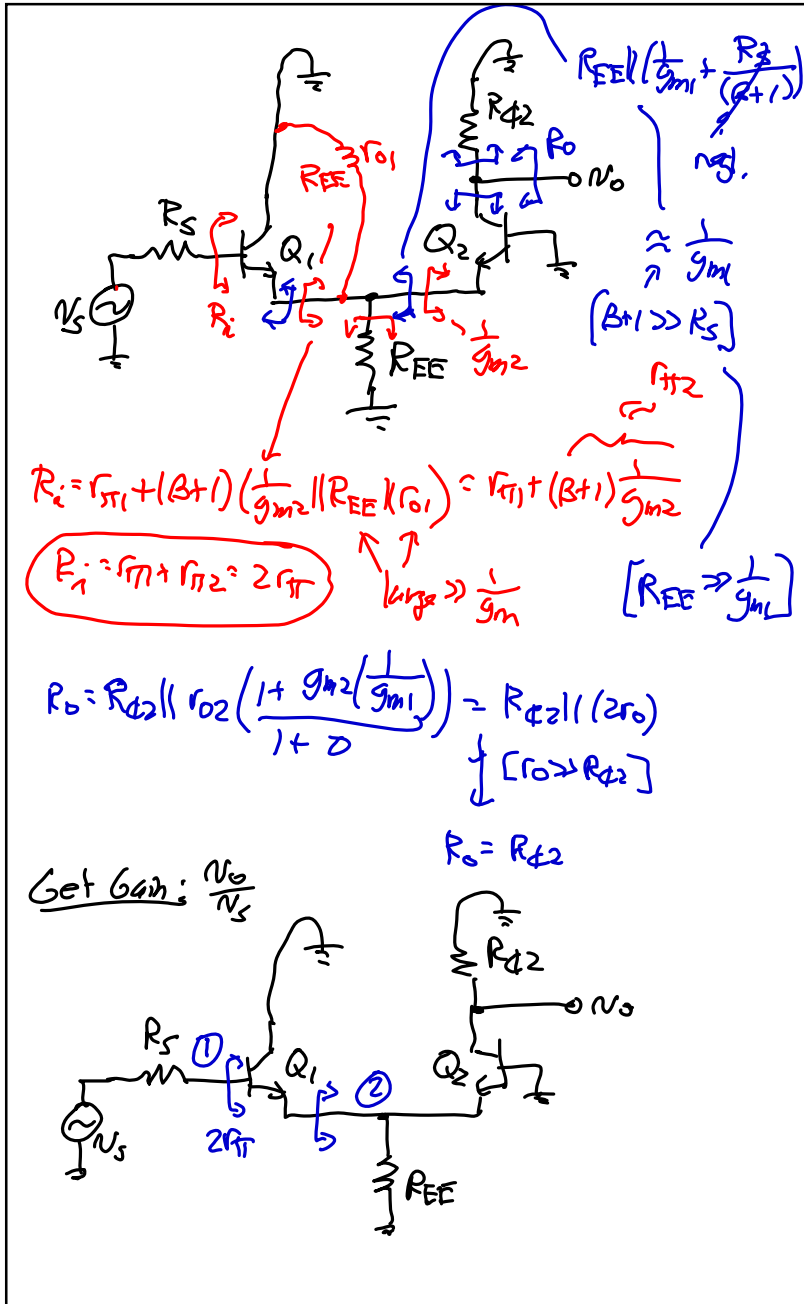 R_EE||(1/g_m1 + R_S/(β+1))
negl.
R_C2
R_o
v_o
r_o1
R_EE
R_S
Q_1
Q_2
≈ 1/g_m1
[β+1 >> R_S]
v_S
R_i
R_EE
1/g_m2
≈ r_π2
R_i = r_π1 + (β+1)(1/g_m2||R_EE||r_o1) = r_π1 + (β+1) 1/g_m2
R_i = r_π1 + r_π2 = 2r_π
large >> 1/g_m
[R_EE >> 1/g_m1]
R_o = R_C2||r_o2((1 + g_m2(1/g_m1))/(1 + 0)) = R_C2||(2r_o)
[r_o >> R_C2]
R_o = R_C2
Get Gain: v_o/v_S
R_C2
v_o
R_S
①
Q_1
②
Q_2
v_S
2r_π
R_EE